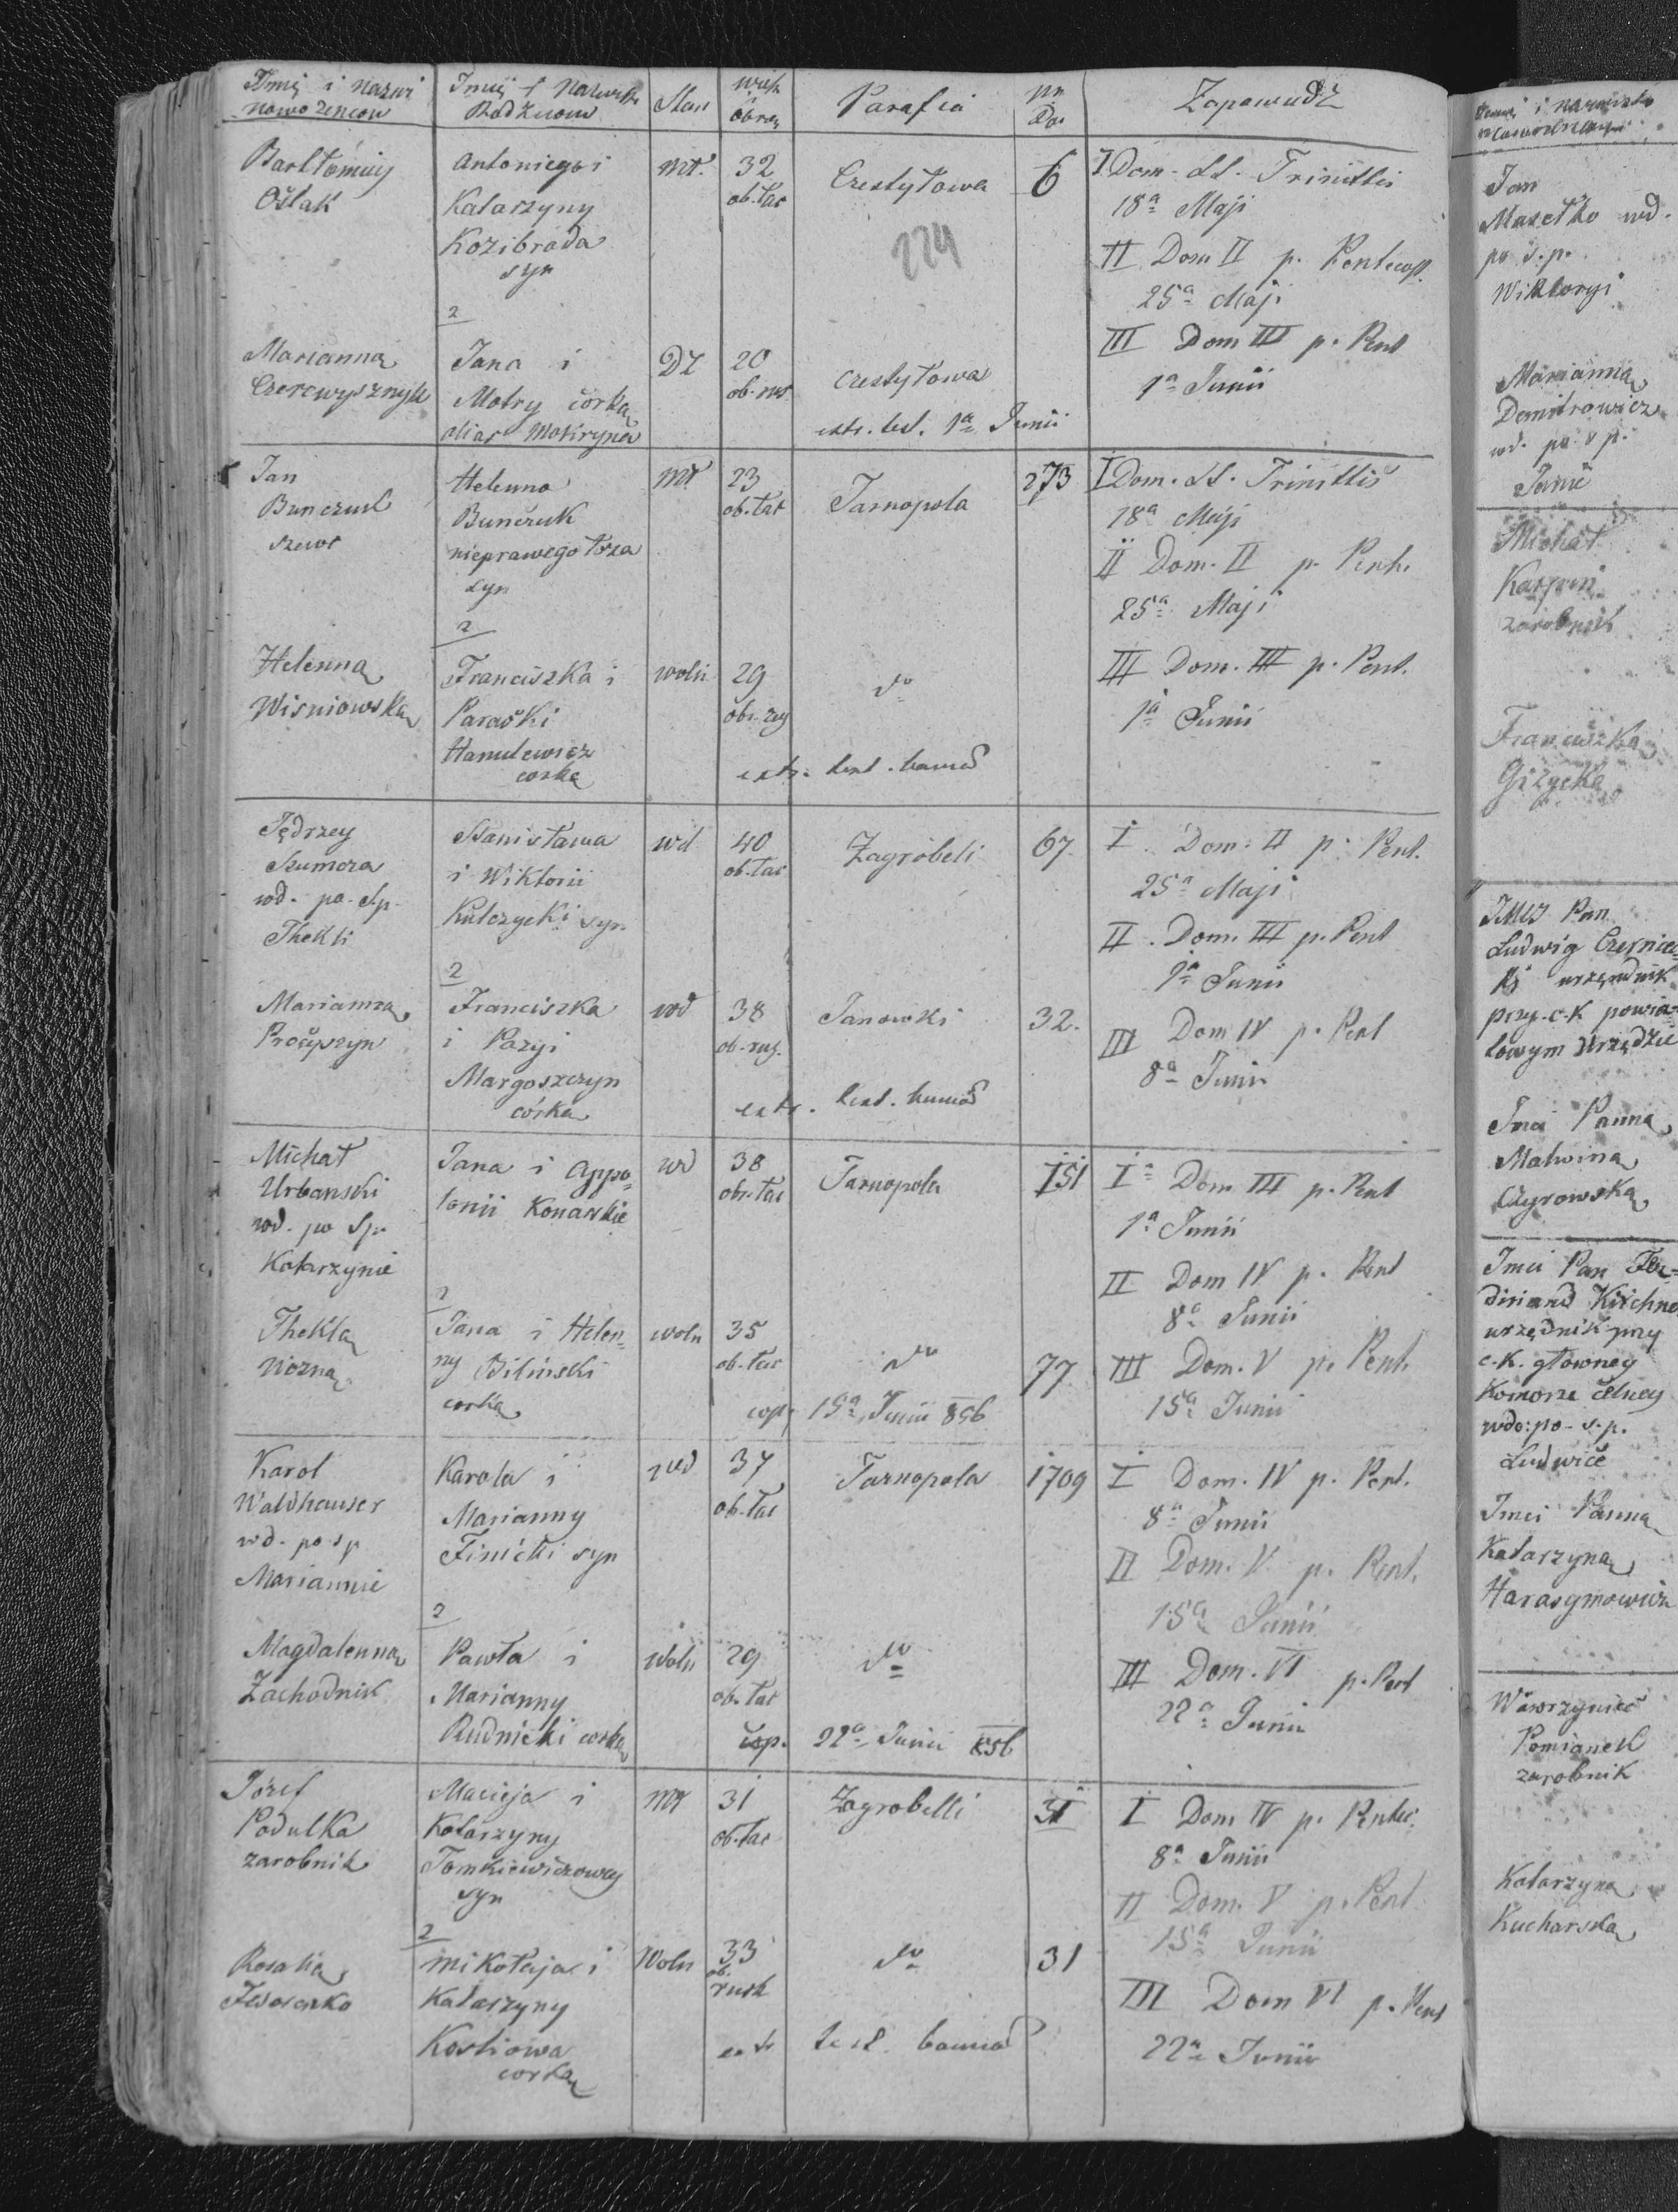 Imię i Nazwi
nowożencow
Imię i Nazwisk
Rodziców
Stan
wiek
i
obrzą
Parafia
Nr
Do
Zapowiedz
Bartłomiey
Oślak
Antoniego i
Katarzyny
Kozibroda
syn
mł.
32
ob. łac
Czestyłowa
6
224
I Dom. SS. Trinittis
18a Maji
II Dom II p. Pentecost.
25a Maji
III Dom III p. Pent
1a Junii
2
Marianna
Czerewysznyk
Jana i
Motry córka
alias Mokryna
Dz
20
ob. rus.
Czestyłowa
extr. test. 1a Junii
Jan
Bunczuk
szewc
Helenna
Bunczuk
nieprawego łoża
syn
mł
23
ob. łac
Tarnopola
273
I Dom. SS. Trinittis
18a Maji
II Dom. II p. Pent.
25a Maji
III Dom. III p. Pent.
1a Junii
2
Helenna
Wisniowska
Franciszka i
Paraski
Hanulewicz
corka
woln
29
obr. rus
do
extr. test. bannos
Jędrzey
Szumera
wd. po Sp.
Thekli
Stanisława
i Wiktorii
Kulczycki syn
wd
40
ob. łac
Zagrobeli
67.
I Dom. II p. Pent.
25a Maji
II. Dom. III p. Pent
1a Junii
III Dom IV p. Pent
8a Junii
2
Marianna
Franciszka
i Pazyi
Margoszczyn
córka
wd
38
ob. rus.
Janowki
32.
extr. test. bannos
Michał
Urbanski
wd. po Sp.
Katarzynie
Jana i Appo-
lonii Konarskie
wd
38
obr. łac
Tarnopola
151
I Dom III p. Pent
1a Junii
II Dom IV p. Pent
8a Junii
III Dom. V p. Pent.
15a Junii
2
Thekla
Wozna
Jana i Helen-
ny Bilinski
corka
woln
35
ob. łac
do
77
cop. 15a Junii 856
Karol
Waldhauser
wd. po sp
Mariannie
Karola i
Marianny
Finicki syn
wd
37
ob. łac
Tarnopola
1709
I Dom. IV p. Pent.
8a Junii
II Dom. V p. Pent.
15a Junii
III Dom. VI p. Pent
22a Junii
2
Magdalenna
Zachodnik
Pawła i
Marianny
Rudnicki corka
woln
29
ob. łac
do
cop. 22a Junii 856
Józef
Podulka
zarobnik
Macieja i
Katarzyny
Tomkiewiczowey
syn
mł
31
ob. łac
Zagrobelli
31
I Dom IV p. Pentec.
8a Junii
II Dom. V p. Pent.
15a Junii
III Dom VI p. Pent
22a Junii
2
Rosalia
Mikołaja i
Katarzyny
Kostiowa
corka
Woln
33
ob.
rusk
do
31
extr test. bannos
Imię i nazwisko
Jan
Masełko wd.
po s. p.
Wiktoryi
Marianna
Demitrowicz
wd. po s p.
Janie
Michał
Karpin
zarobnik
Franciszka
Giżycka
JMCJ Pan
Ludwig Czernic-
ki urzędnik
przy c.k powia-
towym Urzędzie
Jmci Panna
Malwina
Czyrowska
Jmci Pan Fer-
dinand Kirchne
urzędnik przy
c.k. głowney
Komorze celney
wdo: po s. p.
Ludwice
Jmci Panna
Katarzyna
Harasymowicz
Wawrzyniec
Pomianek
zarobnik
Katarzyna
Kucharska